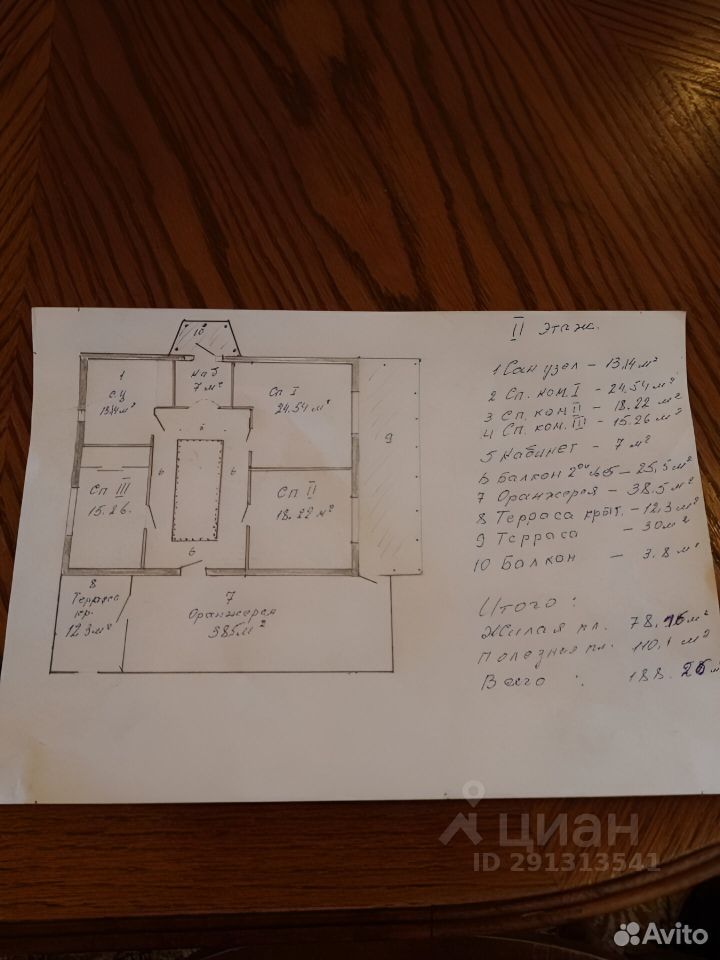 II этаж.
1 Сан узел – 13.14 м²
2 Сп. ком. I – 24.54 м²
3 Сп. ком II – 18.22 м²
4 Сп. ком. III – 15.26 м²
5 Кабинет – 7 м²
6 Балкон – 25,5 м²
7 Оранжерея – 38.5 м²
8 Терраса крыт. – 12,3 м²
9 Терраса – 30 м²
10 Балкон – 3.8 м²
Итого:
Жилая пл. 78,16 м²
Полезная пл. 110,1 м²
Всего : 188.26 м
10
1
с.у
13.14 м²
каб
7 м²
Сп I
24.54 м²
5
6
6
9
Сп III
15.26.
Сп II
18.22 м²
6
8
Терраса
кр.
12.3 м²
7
Оранжерея
38.5 м²
циан
ID 291313541
Avito